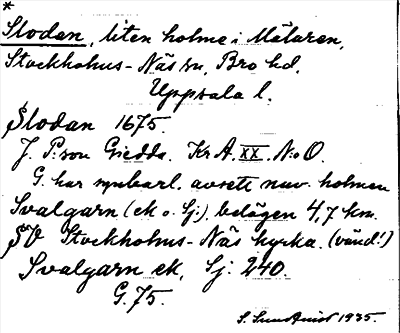 *
Slodan, liten holme i Mälaren,
Stockholms-Näs sn, Bro hd.
Uppsala l.
Slodan 1675.
J. P:son Giedda. Kr A. XX. N:o O.
G. har synbarl. avsett nuv. holmen
Svalgarn (ek o. Sj:), belägen 4,7 km.
SV Stockholms-Näs kyrka. (vänd!)
Svalgarn ek, Sj: 240.
G. 75.
S. Sundqvist 1935.